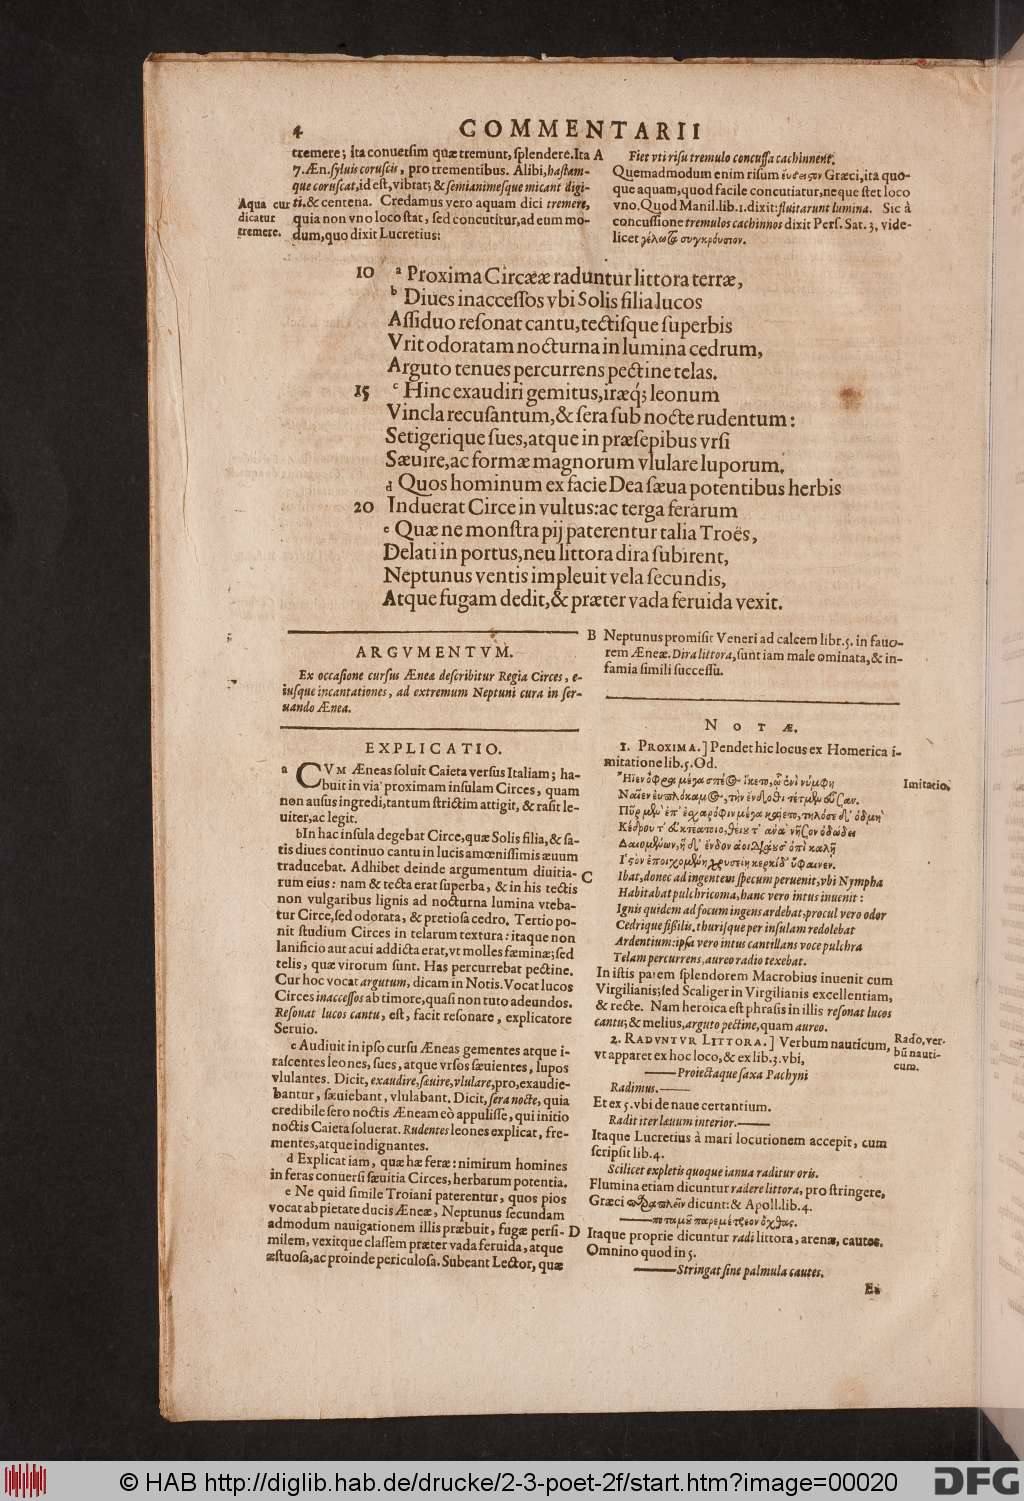 4 COMMENTARII
tremere; ita conuersim quæ tremunt, splendere. Ita A
7. Æn. syluis coruscis, pro trementibus. Alibi, hastam-
que coruscat, id est, vibrat; & semianimesque micant digi-
ti, & centena. Credamus vero aquam dici tremere,
quia non vno loco stat, sed concutitur, ad eum mo-
dum, quo dixit Lucretius:
Aqua cur
dicatur
tremere.
Fiet vti risu tremulo concussa cachinnent.
Quemadmodum enim risum Græci, ita quo-
que aquam, quod facile concutiatur, neque stet loco
vno. Quod Manil. lib. 1. dixit: fluitarunt lumina. Sic à
concussione tremulos cachinnos dixit Pers. Sat. 3. vide-
licet γέλωτος συγκρούσιον.
10 a Proxima Circææ raduntur littora terræ,
b Diues inaccessos vbi Solis filia lucos
Assiduo resonat cantu, tectisque superbis
Vrit odoratam nocturna in lumina cedrum,
Arguto tenues percurrens pectine telas.
15 c Hinc exaudiri gemitus, iræq; leonum
Vincla recusantum, & sera sub nocte rudentum:
Setigerique sues, atque in præsepibus vrsi
Sæuire, ac formæ magnorum vlulare luporum.
d Quos hominum ex facie Dea sæua potentibus herbis
20 Induerat Circe in vultus: ac terga ferarum
e Quæ ne monstra pij paterentur talia Troës,
Delati in portus, neu littora dira subirent,
Neptunus ventis impleuit vela secundis,
Atque fugam dedit, & præter vada feruida vexit.
ARGVMENTVM.
Ex occasione cursus Æneæ describitur Regia Circes, e-
iusque incantationes, ad extremum Neptuni cura in ser-
uando Ænea.
EXPLICATIO.
a CVM Æneas soluit Caieta versus Italiam; ha-
buit in via proximam insulam Circes, quam
non ausus ingredi, tantum strictim attigit, & rasit le-
uiter, ac legit.
b In hac insula degebat Circe, quæ Solis filia, & sa-
tis diues continuo cantu in lucis amœnissimis æuum
traducebat. Adhibet deinde argumentum diuitia- C
rum eius: nam & tecta erat superba, & in his tectis
non vulgaribus lignis ad nocturna lumina vteba-
tur Circe, sed odorata, & pretiosa cedro. Tertio po-
nit studium Circes in telarum textura: itaque non
lanificio aut acui addicta erat, vt molles fæminæ; sed
telis, quæ virorum sunt. Has percurrebat pectine.
Cur hoc vocat argutum, dicam in Notis. Vocat lucos
Circes inaccessos ab timore, quasi non tuto adeundos.
Resonat lucos cantu, est, facit resonare, explicatore
Seruio.
c Audiuit in ipso cursu Æneas gementes atque i-
rascentes leones, sues, atque vrsos sæuientes, lupos
vlulantes. Dicit, exaudire, sæuire, vlulare, pro, exaudie-
bantur, sæuiebant, vlulabant. Dicit, sera nocte, quia
credibile sero noctis Æneam eò appulisse, qui initio
noctis Caieta soluerat. Rudentes leones explicat, fre-
mentes, atque indignantes.
d Explicat iam, quæ hæ feræ: nimirum homines
in feras conuersi sæuitia Circes, herbarum potentia.
e Ne quid simile Troiani paterentur, quos pios
vocat ab pietate ducis Æneæ, Neptunus secundam
admodum nauigationem illis præbuit, fugæ persi- D
milem, vexitque classem præter vada feruida, atque
æstuosa, ac proinde periculosa. Subeant Lector, quæ
B Neptunus promisit Veneri ad calcem libr. 5. in fauo-
rem Æneæ. Dira littora, sunt iam male ominata, & in-
famia simili successu.
NOTÆ.
1. PROXIMA.] Pendet hic locus ex Homerica i-
mitatione lib. 5. Od.
Ἤϊεν ὄφρα μέγα σπέος ἵκετο, ᾧ ἐνὶ νύμφη
Ναῖεν ἐυπλόκαμος, τὴν ἔνδοθι τέτμεν ἐοῦσαν.
Πῦρ μὲν ἐπ' ἐσχαρόφιν μέγα καίετο, τηλόσε δ' ὀδμὴ
Κέδρου τ' εὐκεάτοιο, θύου τ' ἀνὰ νῆσον ὀδώδει
Δαιομένων, ἡ δ' ἔνδον ἀοιδιάουσ' ὀπὶ καλῇ
Ἱστὸν ἐποιχομένη χρυσείῃ κερκίδ' ὕφαινεν.
Imitatio.
Ibat, donec ad ingentem specum peruenit, vbi Nympha
Habitabat pulchricoma, hanc vero intus inuenit:
Ignis quidem ad focum ingens ardebat, procul vero odor
Cedrique fissilis, thurisque per insulam redolebat
Ardentium: ipsa vero intus cantillans voce pulchra
Telam percurrens, aureo radio texebat.
In istis parem splendorem Macrobius inuenit cum
Virgilianis; sed Scaliger in Virgilianis excellentiam,
& recte. Nam heroica est phrasis in illis resonat lucos
cantu; & melius, arguto pectine, quam aureo.
2. RADVNTVR LITTORA.] Verbum nauticum,
vt apparet ex hoc loco, & ex lib. 3. vbi,
Rado, ver-
bū nauti-
cum.
—— Proiectaque saxa Pachyni
Radimus. ——
Et ex 5. vbi de naue certantium.
Radit iter læuum interior. ——
Itaque Lucretius à mari locutionem accepit, cum
scripsit lib. 4.
Scilicet expletis quoque ianua raditur oris.
Flumina etiam dicuntur radere littora, pro stringere,
Græci παραπλεῖν dicunt: & Apoll. lib. 4.
—— ποταμοῦ παρεμέτρεον ὄχθας.
Itaque proprie dicuntur radi littora, arenæ, cautes.
Omnino quod in 5.
—— Stringat sine palmula cautes.
Ex
© HAB http://diglib.hab.de/drucke/2-3-poet-2f/start.htm?image=00020
DFG